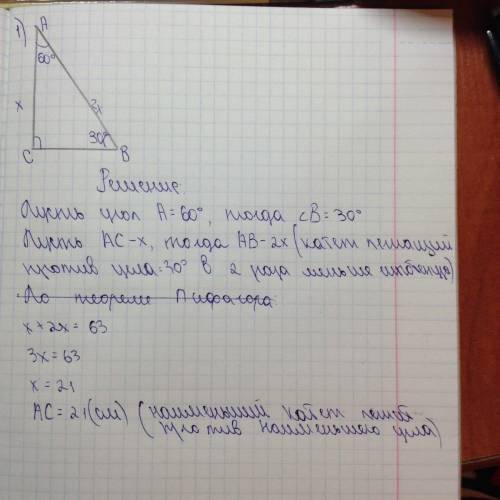 1)
A
60°
x
3x
30°
C
B
Решение.
Пусть угол A=60°, тогда ∠B=30°
Пусть AC-x, тогда AB-2x (катет лежащий
против угла 30° в 2 раза меньше гипотенузы)
По теореме Пифагора
x+2x=63
3x=63
x=21
AC=21(см) (наименьший катет лежит
против наименьшего угла)